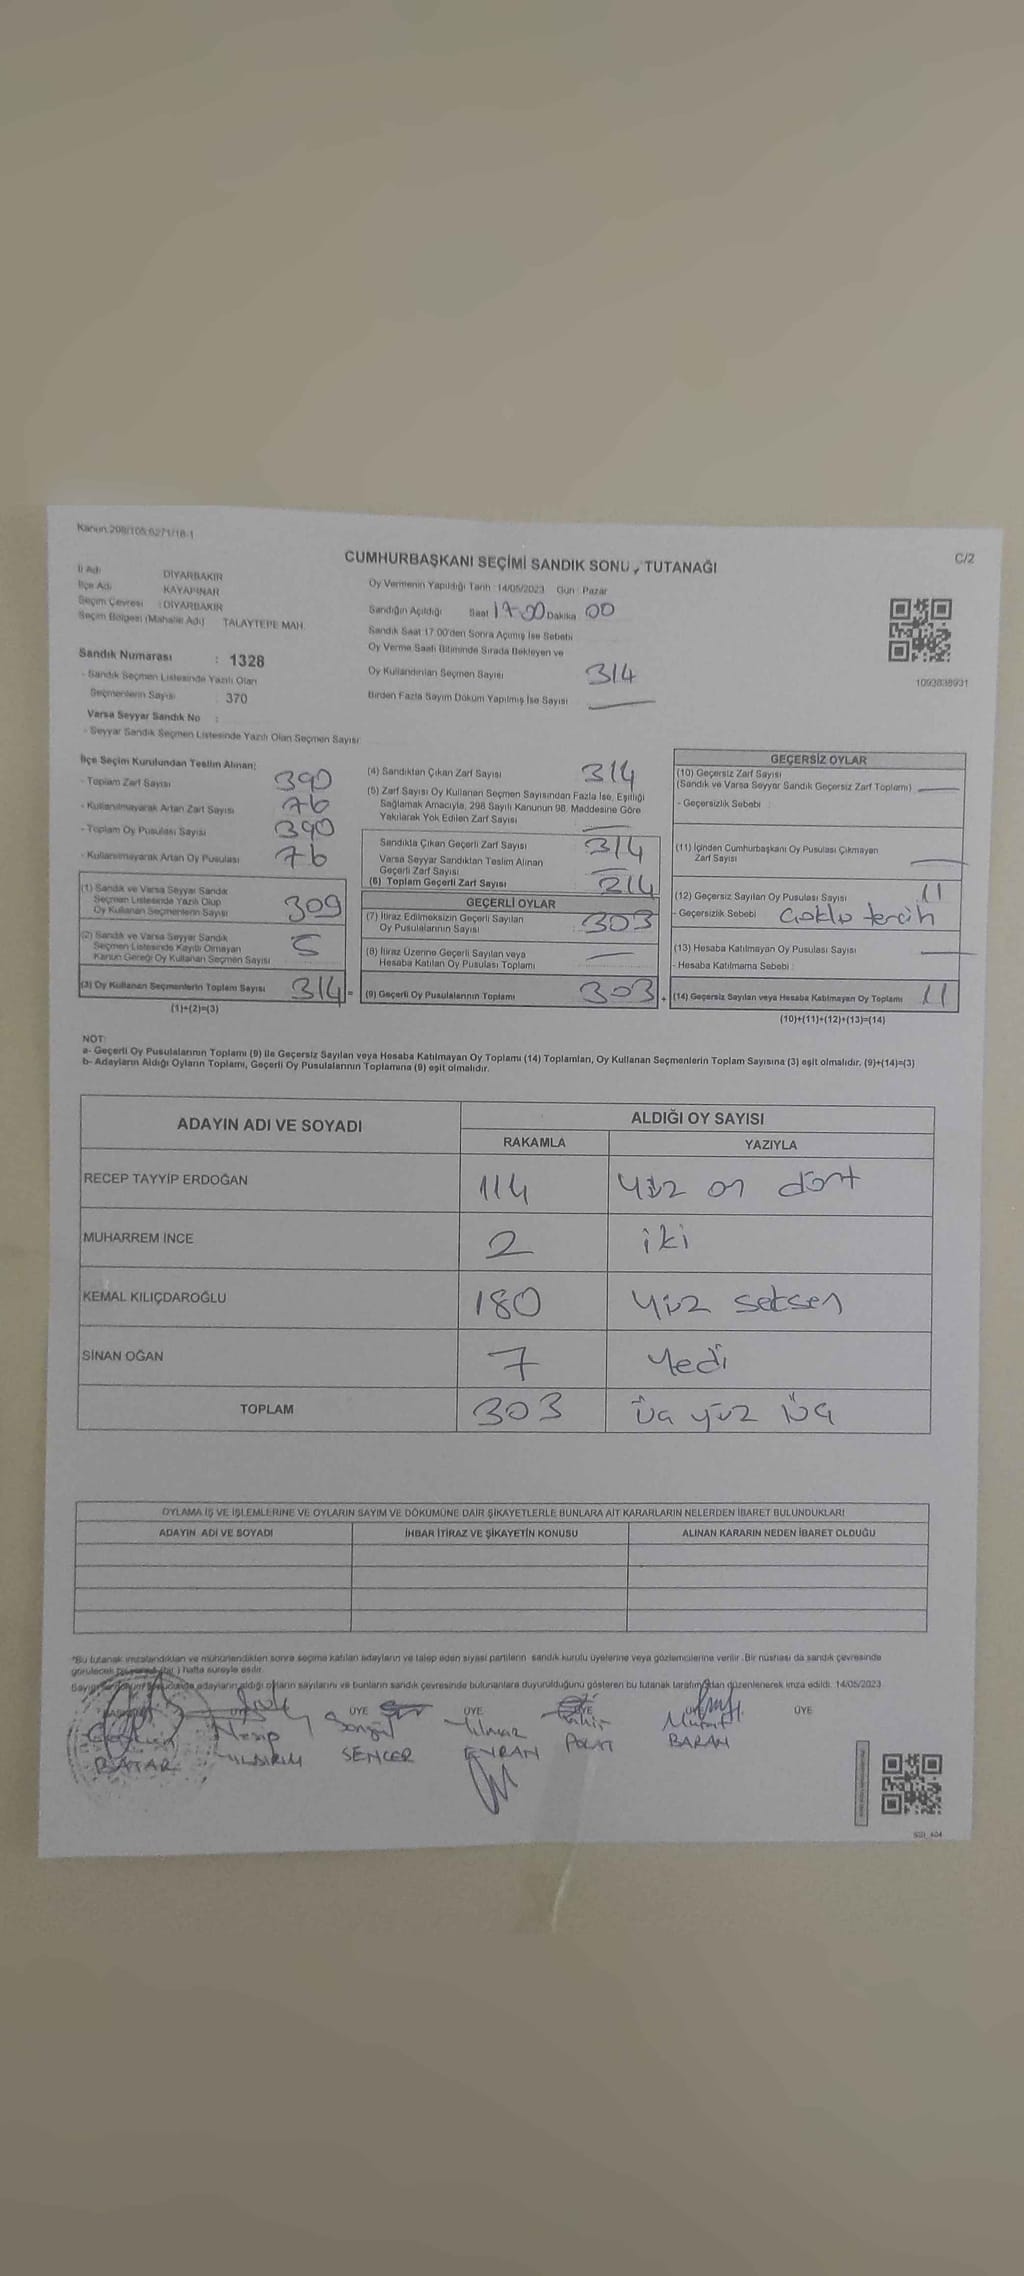 Kanun:298/105;6271/18-1
CUMHURBAŞKANI SEÇİMİ SANDIK SONUÇ TUTANAĞI
C/2
İl Adı : DİYARBAKIR
İlçe Adı : KAYAPINAR
Seçim Çevresi : DİYARBAKIR
Seçim Bölgesi (Mahalle Adı) : TALAYTEPE MAH.
Sandık Numarası : 1328
- Sandık Seçmen Listesinde Yazılı Olan
Seçmenlerin Sayısı : 370
Varsa Seyyar Sandık No :
- Seyyar Sandık Seçmen Listesinde Yazılı Olan Seçmen Sayısı
Oy Vermenin Yapıldığı Tarih : 14/05/2023 Gün : Pazar
Sandığın Açıldığı Saat 17.00 Dakika 00
Sandık Saat 17:00'den Sonra Açılmış İse Sebebi
Oy Verme Saati Bitiminde Sırada Bekleyen ve
Oy Kullandırılan Seçmen Sayısı 314
Birden Fazla Sayım Döküm Yapılmış İse Sayısı —
1093838931
İlçe Seçim Kurulundan Teslim Alınan;
- Toplam Zarf Sayısı 390
- Kullanılmayarak Artan Zarf Sayısı 76
- Toplam Oy Pusulası Sayısı 390
- Kullanılmayarak Artan Oy Pusulası 76
(1) Sandık ve Varsa Seyyar Sandık
Seçmen Listesinde Yazılı Olup
Oy Kullanan Seçmenlerin Sayısı 309
(2) Sandık ve Varsa Seyyar Sandık
Seçmen Listesinde Kayıtlı Olmayan
Kanun Gereği Oy Kullanan Seçmen Sayısı 5
(3) Oy Kullanan Seçmenlerin Toplam Sayısı 314 =
(1)+(2)=(3)
(4) Sandıktan Çıkan Zarf Sayısı 314
(5) Zarf Sayısı Oy Kullanan Seçmen Sayısından Fazla İse, Eşitliği
Sağlamak Amacıyla, 298 Sayılı Kanunun 98. Maddesine Göre
Yakılarak Yok Edilen Zarf Sayısı —
Sandıkta Çıkan Geçerli Zarf Sayısı 314
Varsa Seyyar Sandıktan Teslim Alınan
Geçerli Zarf Sayısı —
(6) Toplam Geçerli Zarf Sayısı 214
GEÇERLİ OYLAR
(7) İtiraz Edilmeksizin Geçerli Sayılan
Oy Pusulalarının Sayısı 303
(8) İtiraz Üzerine Geçerli Sayılan veya
Hesaba Katılan Oy Pusulası Toplamı —
(9) Geçerli Oy Pusulalarının Toplamı 303 +
GEÇERSİZ OYLAR
(10) Geçersiz Zarf Sayısı
(Sandık ve Varsa Seyyar Sandık Geçersiz Zarf Toplamı) —
- Geçersizlik Sebebi :
(11) İçinden Cumhurbaşkanı Oy Pusulası Çıkmayan
Zarf Sayısı —
(12) Geçersiz Sayılan Oy Pusulası Sayısı 11
- Geçersizlik Sebebi Çoklu tercih
(13) Hesaba Katılmayan Oy Pusulası Sayısı —
- Hesaba Katılmama Sebebi :
(14) Geçersiz Sayılan veya Hesaba Katılmayan Oy Toplamı 11
(10)+(11)+(12)+(13)=(14)
NOT:
a- Geçerli Oy Pusulalarının Toplamı (9) ile Geçersiz Sayılan veya Hesaba Katılmayan Oy Toplamı (14) Toplamları, Oy Kullanan Seçmenlerin Toplam Sayısına (3) eşit olmalıdır. (9)+(14)=(3)
b- Adayların Aldığı Oyların Toplamı, Geçerli Oy Pusulalarının Toplamına (9) eşit olmalıdır.
ADAYIN ADI VE SOYADI
ALDIĞI OY SAYISI
RAKAMLA YAZIYLA
RECEP TAYYİP ERDOĞAN 114 Yüz on dört
MUHARREM İNCE 2 iki
KEMAL KILIÇDAROĞLU 180 Yüz seksen
SİNAN OĞAN 7 Yedi
TOPLAM 303 üç yüz üç
OYLAMA İŞ VE İŞLEMLERİNE VE OYLARIN SAYIM VE DÖKÜMÜNE DAİR ŞİKAYETLERLE BUNLARA AİT KARARLARIN NELERDEN İBARET BULUNDUKLARI
ADAYIN ADI VE SOYADI İHBAR İTİRAZ VE ŞİKAYETİN KONUSU ALINAN KARARIN NEDEN İBARET OLDUĞU
*Bu tutanak imzalandıktan ve mühürlendikten sonra seçime katılan adayların ve talep eden siyasi partilerin sandık kurulu üyelerine veya gözlemcilerine verilir. Bir nüshası da sandık çevresinde
görülecek bir yere (bir) hafta süreyle asılır.
adayların aldığı oyların sayılarını ve bunların sandık çevresinde bulunanlara duyurulduğunu gösteren bu tutanak tarafımızdan düzenlenerek imza edildi. 14/05/2023
ÜYE ÜYE ÜYE ÜYE
Necip Songül Yılmaz Murat
BATAR YILDIRIM SENCER EVRAN POLAT BARAN